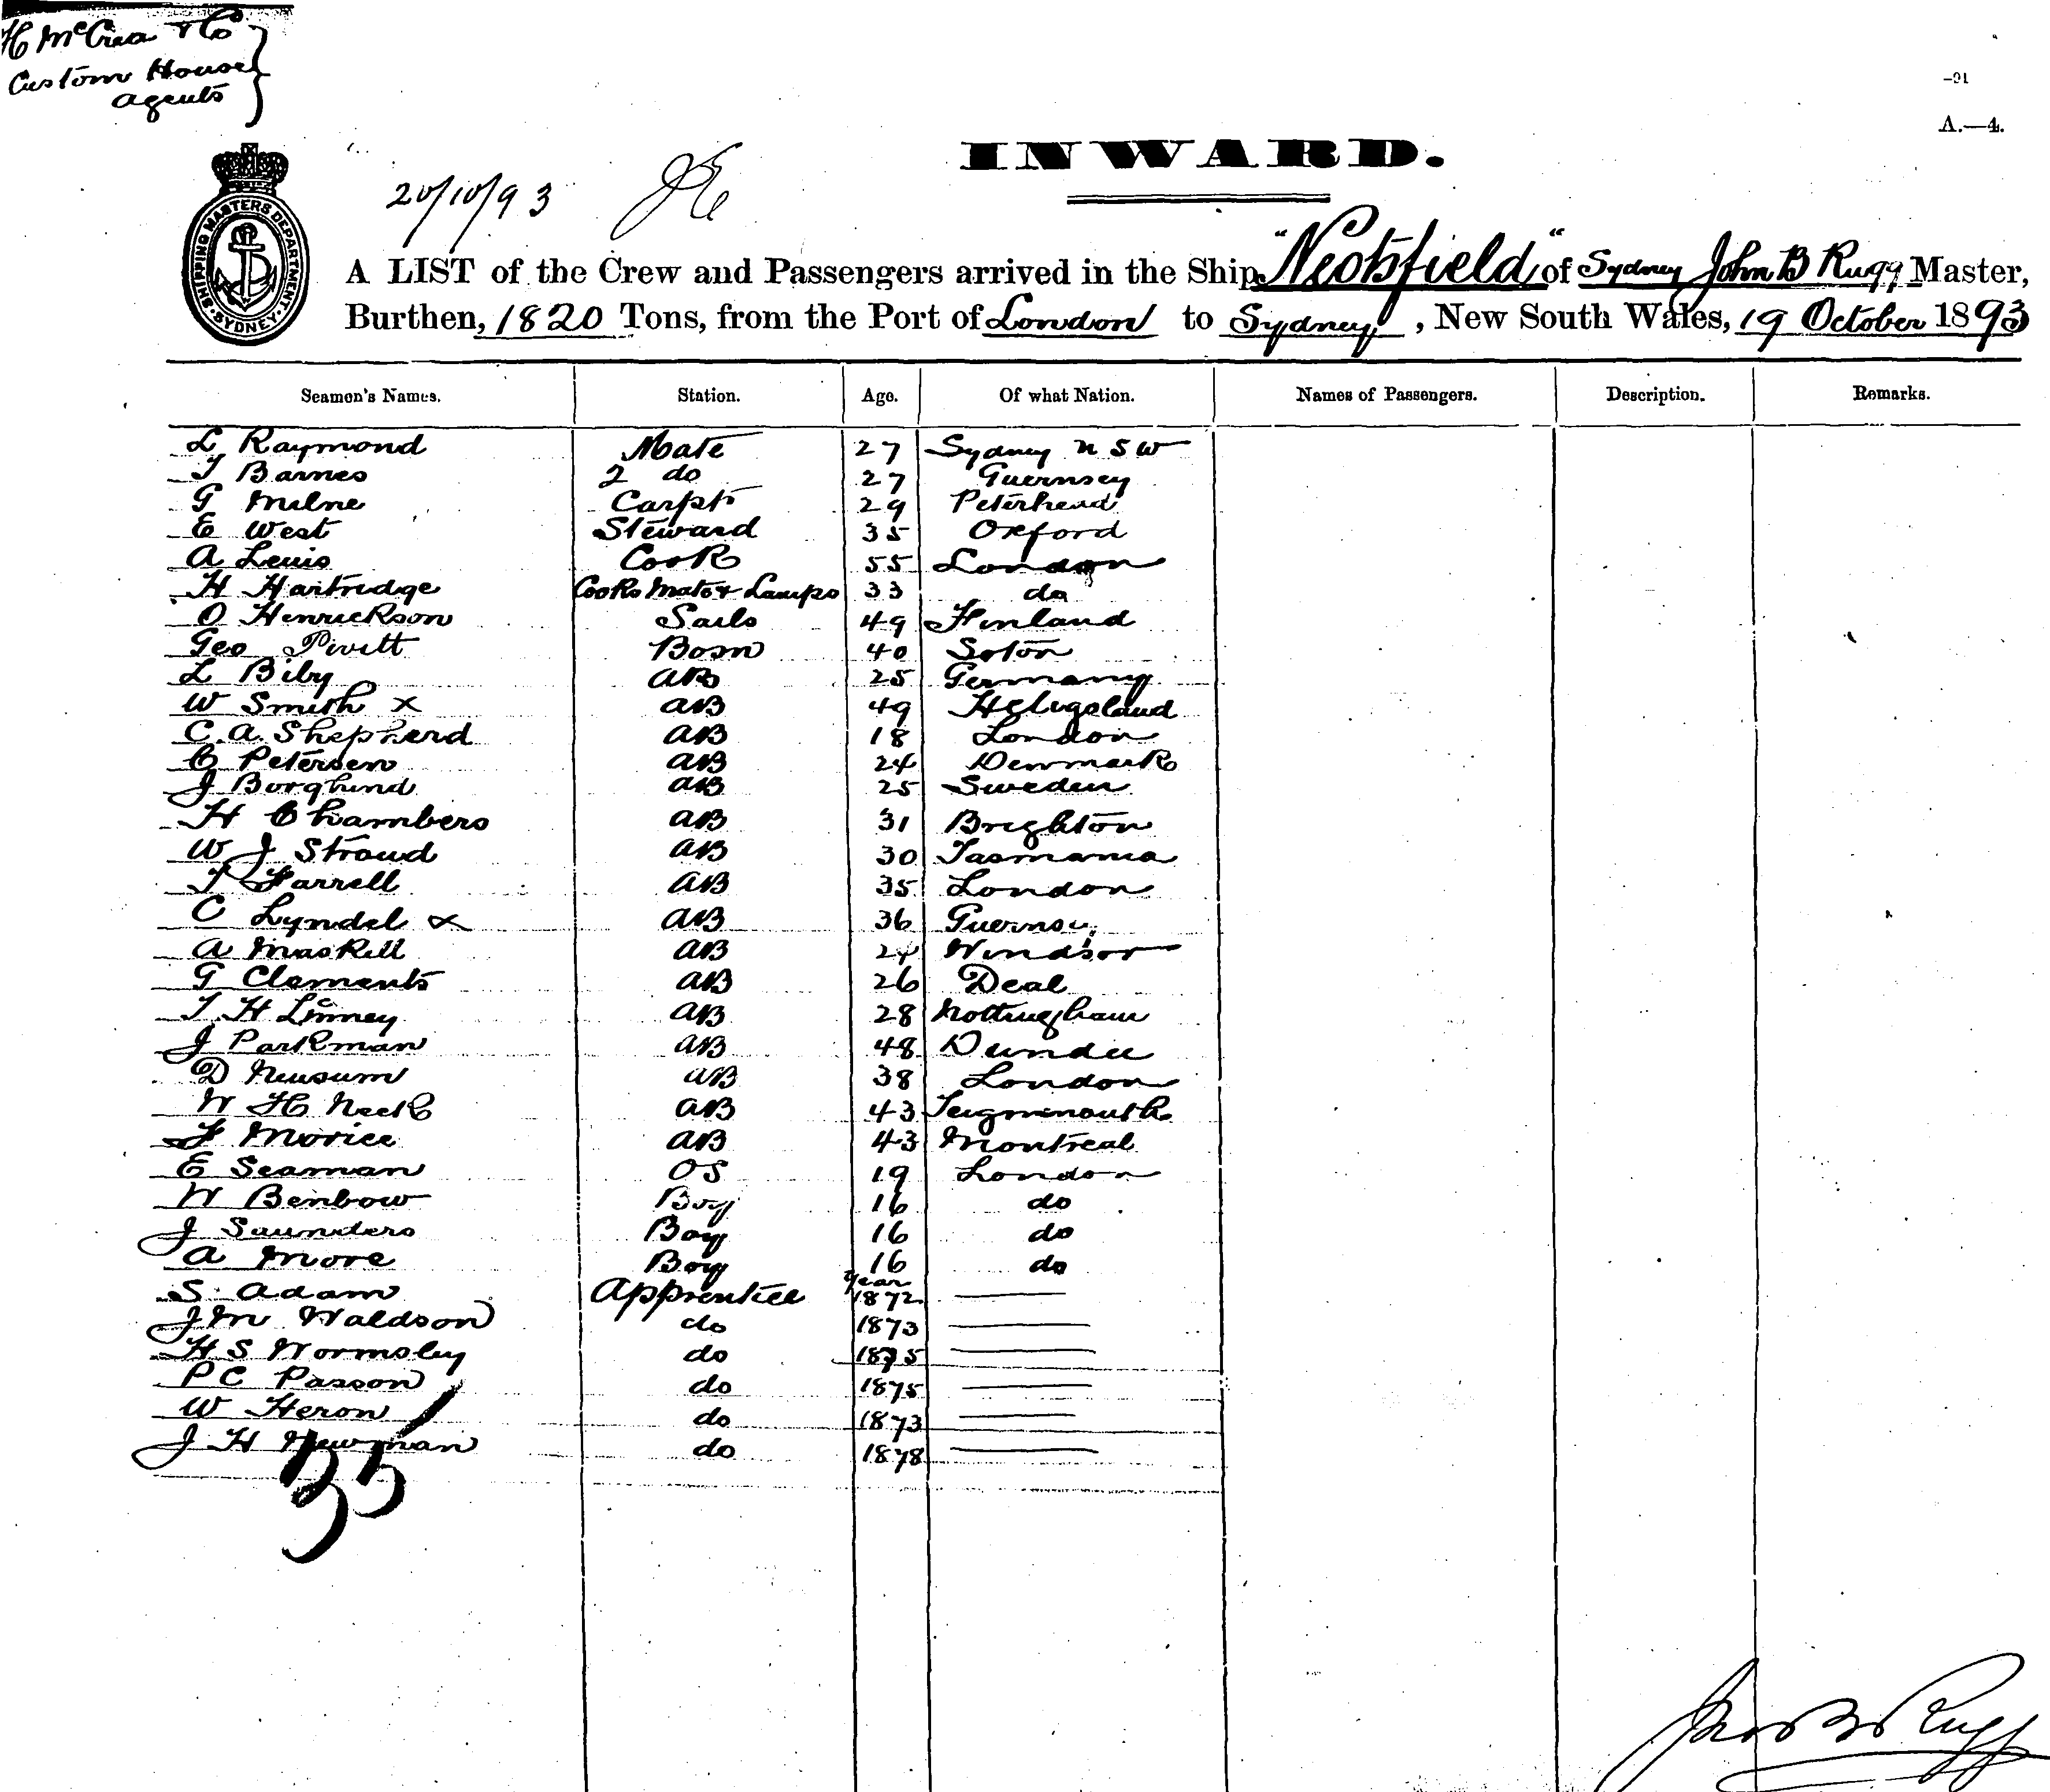 H McCrea & Co
Custom House
agents
-91
A.—4.
INWARD.
20/10/93
SHIPPING MASTERS DEPARTMENT SYDNEY
A LIST of the Crew and Passengers arrived in the Ship "Neotsfield" of Sydney John B Rugg Master,
Burthen, 1820 Tons, from the Port of London to Sydney, New South Wales, 19 October 1893
Seamen's Names. Station. Age. Of what Nation. Names of Passengers. Description. Remarks.
L Raymond Mate 27 Sydney N S W
T Barnes 2 do 27 Guernsey
G Milne Carpt 29 Peterhead
E West Steward 35 Oxford
A Lewis Cook 55 London
H Hartridge Cooks Mate & Lamps 33 do
O Henrickson Sails 49 Finland
Geo Pivett Bosn 40 Soton
L Biby AB 25 Germany
W Smith x AB 49 Heligoland
C. A. Shepherd AB 18 London
C Petersen AB 24 Denmark
J Borghund AB 25 Sweden
H Chambers AB 31 Brighton
W J Stroud AB 30 Tasmania
T Farrell AB 35 London
C Lyndel x AB 36 Guernsey
A Maskell AB 24 Windsor
G Clements AB 26 Deal
T. H Linney AB 28 Nottingham
J Parkman AB 48 Dundee
D Newsum AB 38 London
W H Neck AB 43 Teignmouth
F Morice AB 43 Montreal
E Seaman OS 19 London
W Benbow Boy 16 do
J Saunders Boy 16 do
A More Boy 16 do
S. Adam Apprentice year 1872
J M Waldson do 1873
H S Wormsley do 1875
P C Passon do 1875
W Heron do 1873
J H Newman do 1878
35
Jno B Rugg